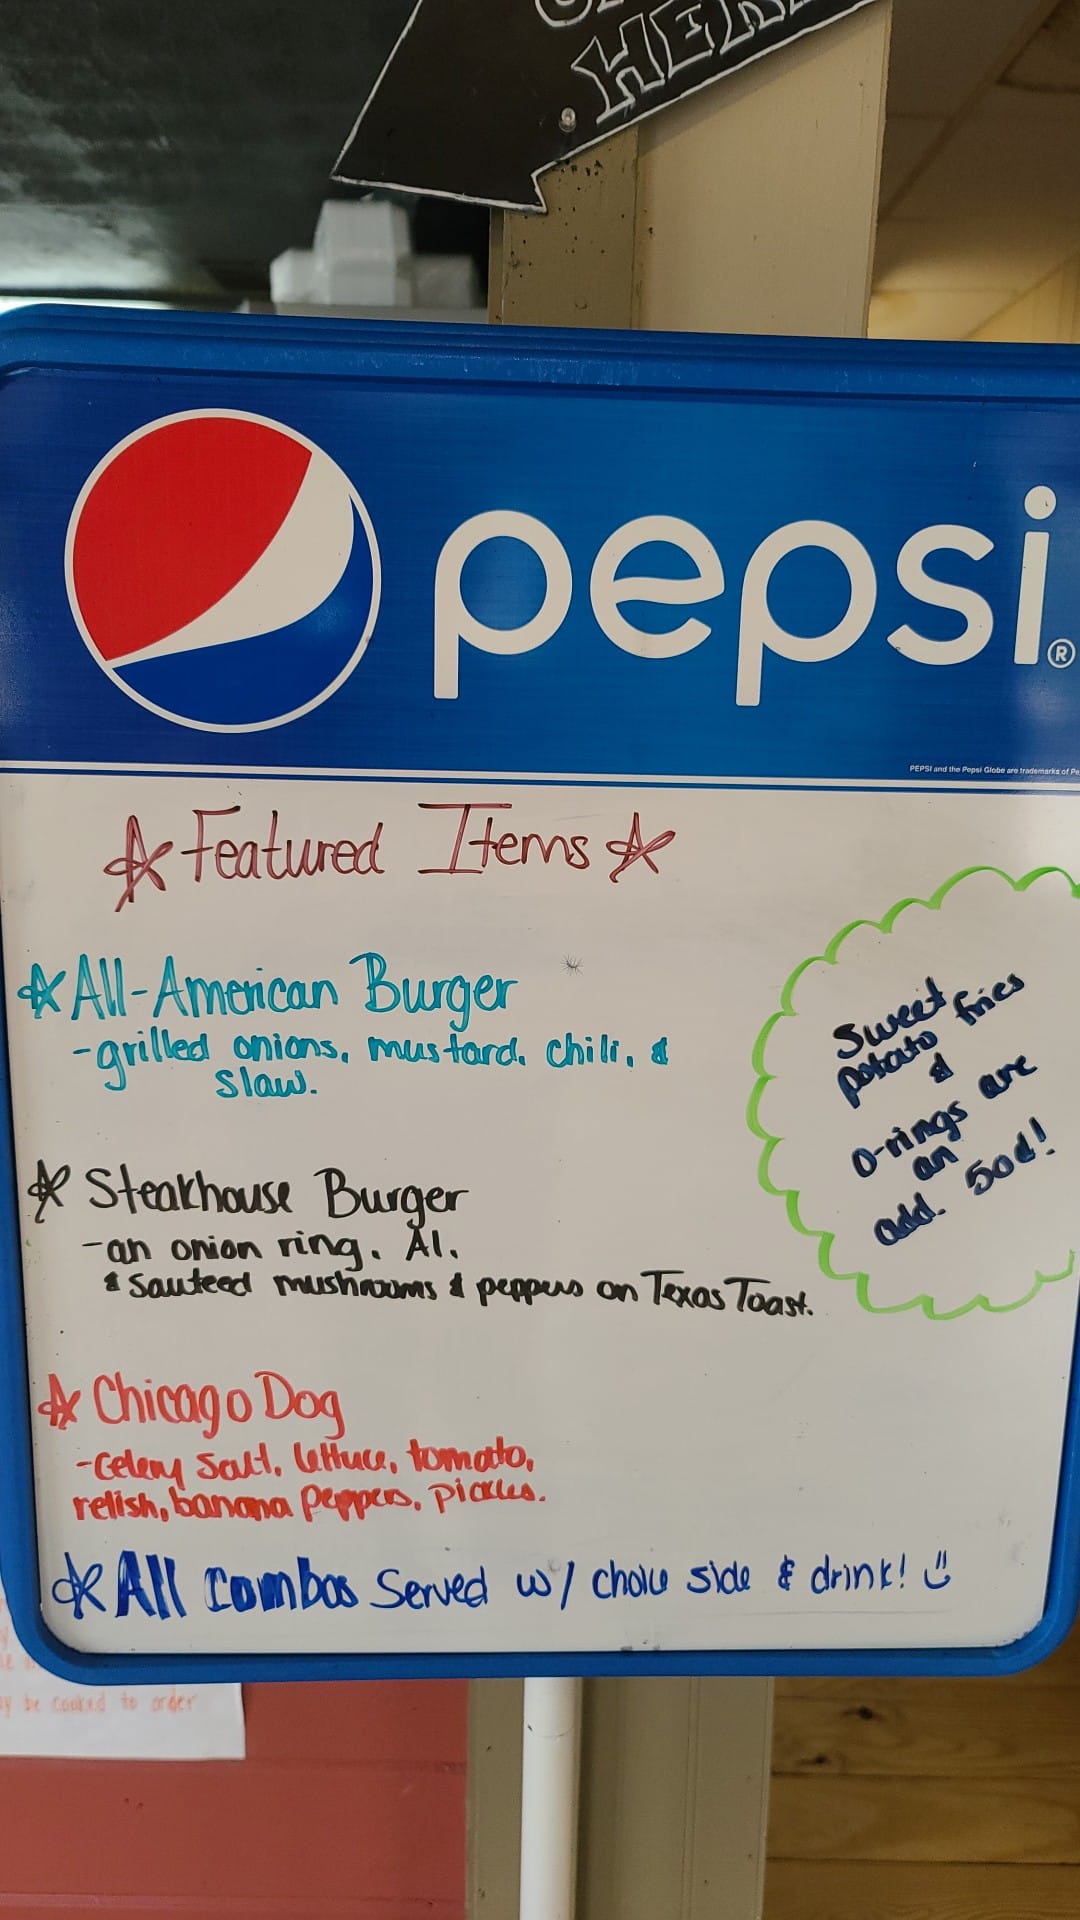 HER
pepsi®
PEPSI and the Pepsi Globe are trademarks of Pe
Featured Items
All-American Burger
-grilled onions, mustard, chili, &
slaw.
Sweet
potato fries
&
O-rings are
an
add. 50¢!
Steakhouse Burger
-an onion ring, A1,
& Sauteed mushrooms & peppers on Texas Toast.
Chicago Dog
-Celery Salt, lettuce, tomato,
relish, banana peppers, pickles.
All combos Served w/ choice side & drink!
be cooked to order